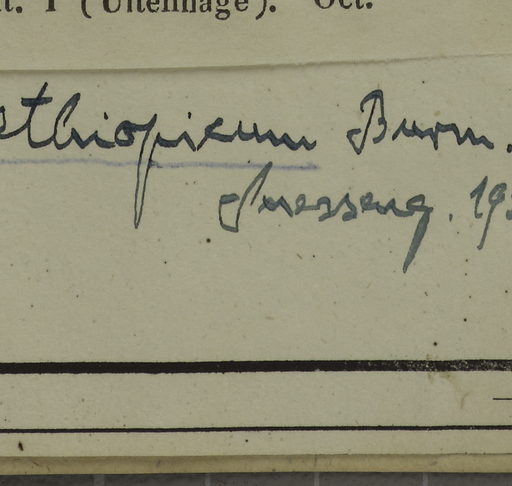 t. I (Uitenhage). Oct.
ethiopicum Burm.
Guesseng. 193